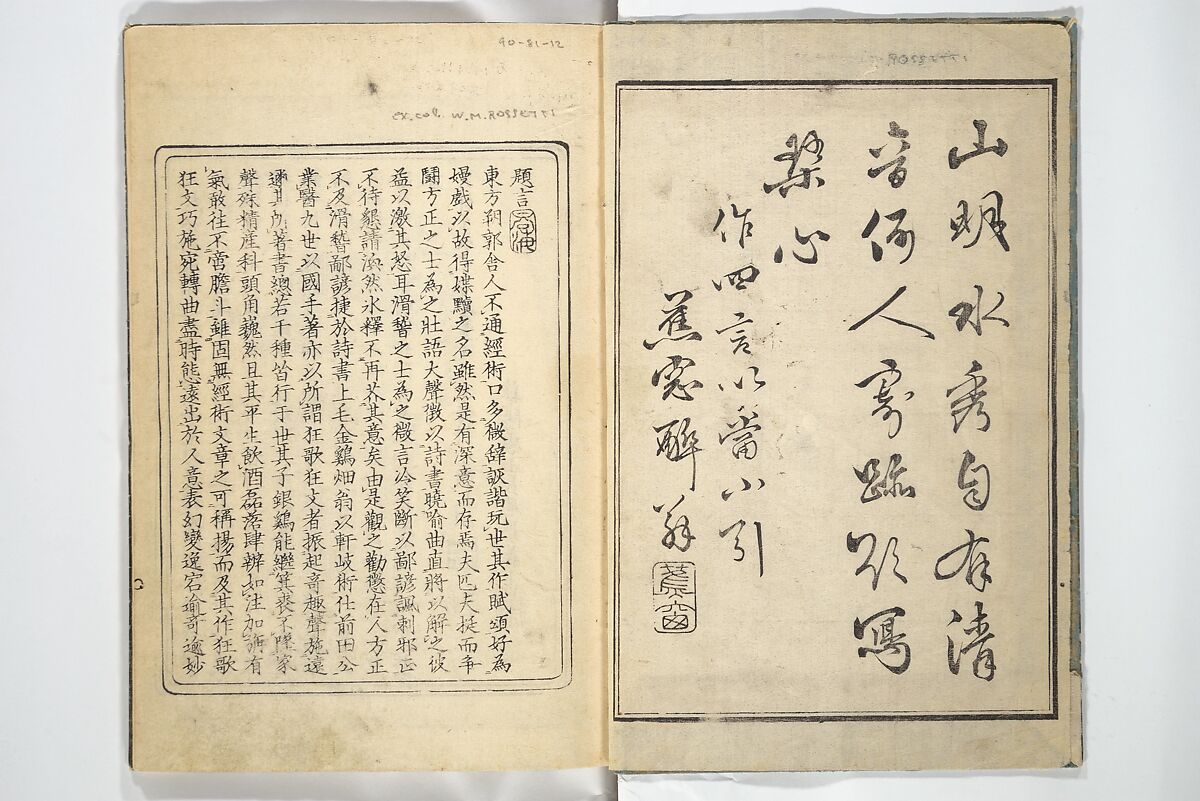 山明水秀自有清
音何人寄跡欲寫
琹心
作四言以當小引
蕉窓酔翁
蕉窗
90-81-12
ex. coll. W.M. ROSSETTI
題言
東方朔郭舍人不通經術口多微辞詼諧玩世其作賦頌好為
嫚戯以故得媟黷之名雖然是有深意而存焉夫匹夫挺而爭
鬪方正之士為之壮語大聲徴以詩書曉喻曲直將以解之彼
益以激其怒耳滑稽之士為之微言冷笑斷以鄙諺諷刺邪正
不待懇請渙然氷釋不再芥其意矣由是觀之勸懲在人方正
不及滑稽鄙諺捷於詩書上毛金鷄畑翁以軒岐術仕前田公
業醫九世以國手著亦以所謂狂歌狂文者振起奇趣聲施遠
邇其所著書總若干種皆行于世其子銀鷄能繼箕裘不墜家
聲殊精産科頭角巍然且其平生飲酒磊落肆辨如注加旃有
氣敢往不啻膽斗雖固無經術文章之可稱揚而及其作狂歌
狂文巧施宛轉曲盡時態遠出於人意表幻變逸宕逾奇逾妙